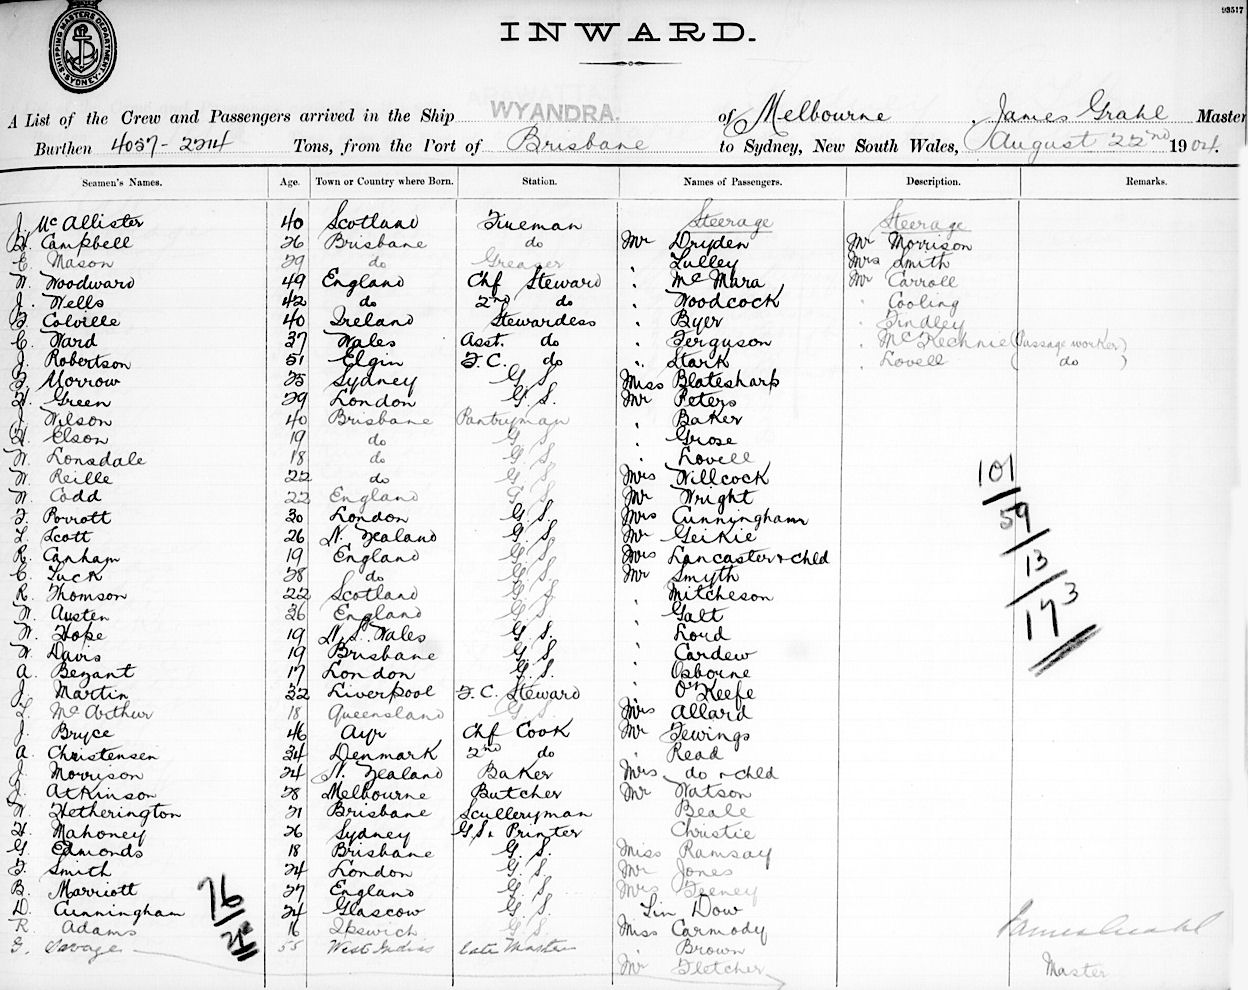 93517
SHIPPING MASTERS DEPARTMENT SYDNEY
INWARD.
A List of the Crew and Passengers arrived in the Ship WYANDRA. of Melbourne, James Grahl Master
Burthen 4057-2214 Tons, from the Port of Brisbane to Sydney, New South Wales, August 22nd 1904.
Seamen's Names. Age. Town or Country where Born. Station. Names of Passengers. Description. Remarks.
J. McAllister 40 Scotland Fireman Steerage Steerage
H. Campbell 26 Brisbane do Mr Dryden Mr Morrison
E. Mason 29 do Greaser " Lulley Mrs Smith
W. Woodward 49 England Chf Steward " McMara Mr Carroll
J. Wells 42 do 2nd do " Woodcock " Cooling
F. Colville 40 Ireland Stewardess " Byer " Findley
C. Ward 37 Wales Asst. do " Ferguson " McKechnie (Passage worker)
J. Robertson 51 Elgin F.C. do " Stark " Lovell ( do )
F. Morrow 25 Sydney G S Miss Blatesharp
H. Green 29 London G. S. Mr Peters
J. Wilson 40 Brisbane Pantryman " Baker
H. Elson 19 do G S " Grose
W. Lonsdale 18 do G S " Lovell
W. Reille 22 do G S Mrs Willcock
W. Codd 22 England G S Mr Wright
F. Porrott 30 London G. S. Mrs Cunningham
L. Scott 26 N. Zealand G. S. Mr Geikie
R. Canham 19 England G S Mrs Lancaster & chld
C. Tuck 28 do G S Mr Smyth
R. Thomson 22 Scotland G S " Mitcheson
W. Austen 26 England G S " Galt
W. Hope 19 N. S. Wales G S. " Lord
W. Davis 19 Brisbane G S. " Cardew
A. Bezant 17 London G. S. " Osborne
J. Martin 32 Liverpool F. C. Steward " O'Keefe
L. McArthur 18 Queensland G S Mrs Allard
J. Bryce 46 Ayr Chf Cook Mr Tewings
A. Christensen 34 Denmark 2nd do " Read
J. Morrison 24 N. Zealand Baker Mrs do & chld
J. Atkinson 28 Melbourne Butcher Mr Watson
W. Hetherington 21 Brisbane Sculleryman " Beale
H. Mahoney 26 Sydney G.S. Printer " Christie
G. Edmonds 18 Brisbane G. S. Miss Ramsay
F. Smith 24 London G. S. Mr Jones
B. Marriott 27 England G. S. Mrs Feeney
D. Cunningham 24 Glascow G S Sin Dow
R. Adams 16 Ipswich G S Miss Carmody
G. Savage 55 West Indies late Master " Brown
Mr Fletcher
101
59
13
173
76
James Grahl
Master